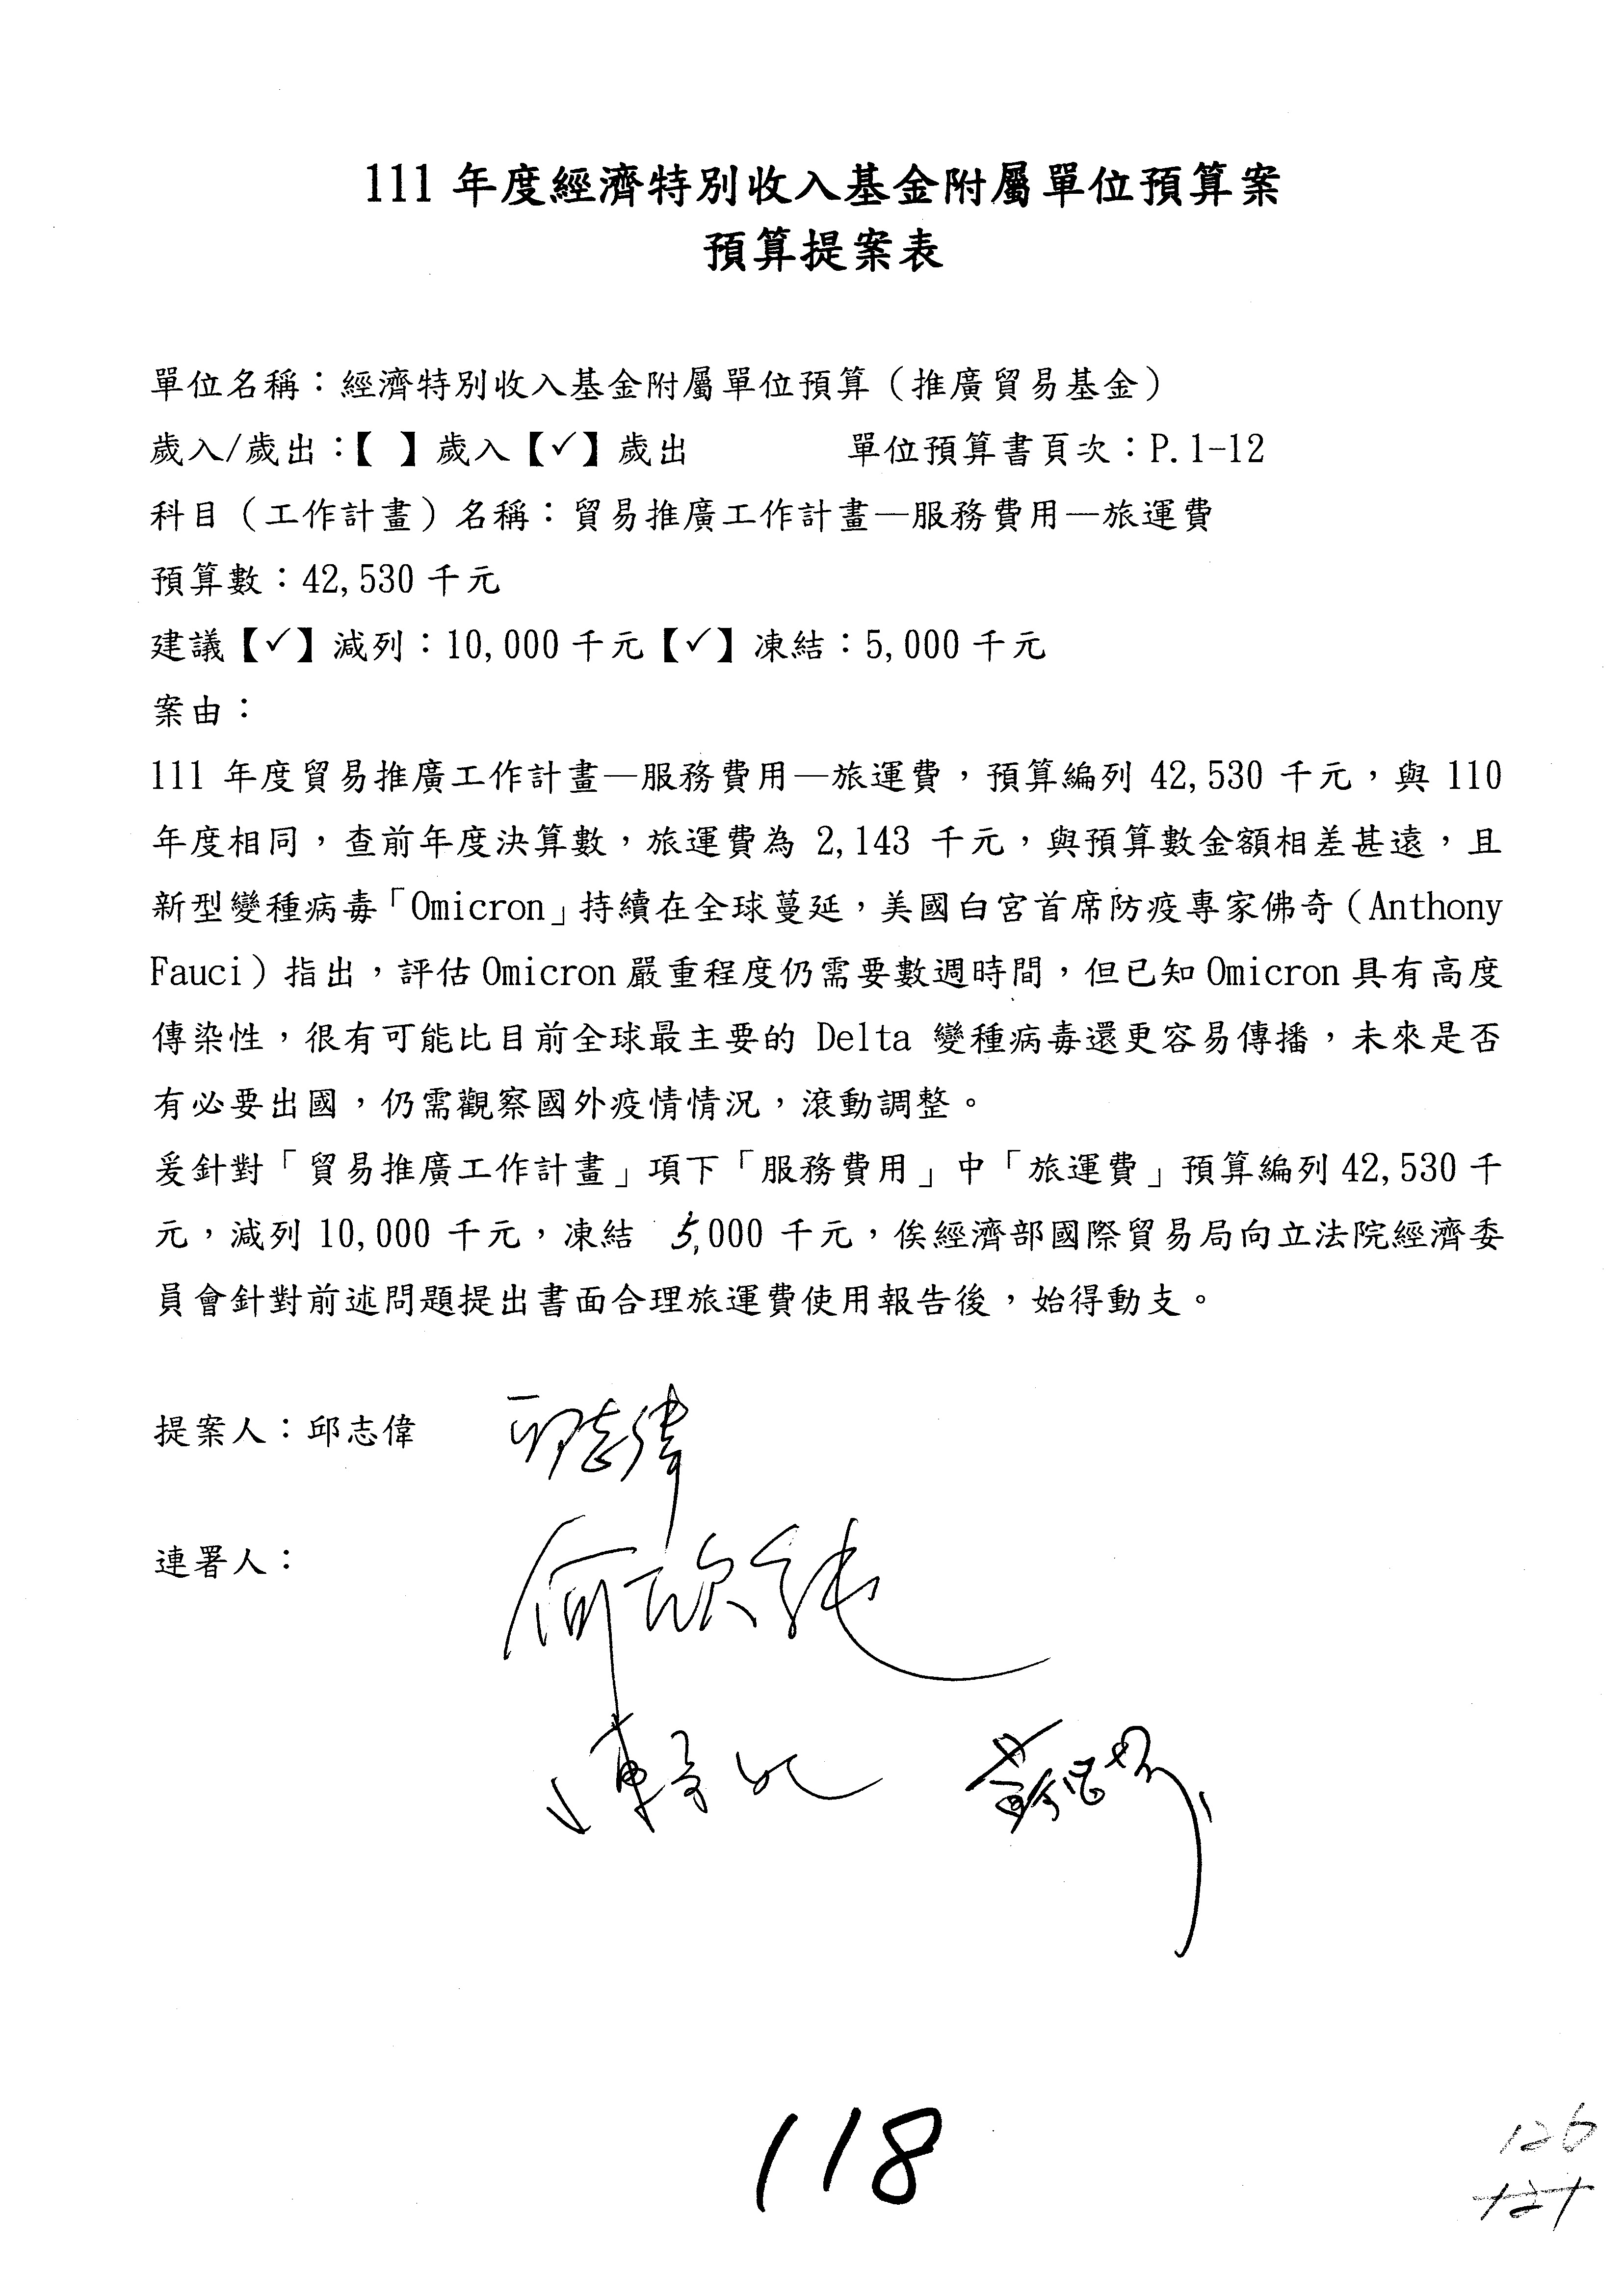 111 年度經濟特別收入基金附屬單位預算案
預算提案表
單位名稱：經濟特別收入基金附屬單位預算（推廣貿易基金）
歲入/歲出：【 】歲入【✓】歲出 單位預算書頁次：P.1-12
科目（工作計畫）名稱：貿易推廣工作計畫—服務費用—旅運費
預算數：42,530 千元
建議【✓】減列：10,000 千元【✓】凍結：5,000 千元
案由：
111 年度貿易推廣工作計畫—服務費用—旅運費，預算編列 42,530 千元，與 110
年度相同，查前年度決算數，旅運費為 2,143 千元，與預算數金額相差甚遠，且
新型變種病毒「Omicron」持續在全球蔓延，美國白宮首席防疫專家佛奇（Anthony
Fauci）指出，評估 Omicron 嚴重程度仍需要數週時間，但已知 Omicron 具有高度
傳染性，很有可能比目前全球最主要的 Delta 變種病毒還更容易傳播，未來是否
有必要出國，仍需觀察國外疫情情況，滾動調整。
爰針對「貿易推廣工作計畫」項下「服務費用」中「旅運費」預算編列 42,530 千
元，減列 10,000 千元，凍結 5,000 千元，俟經濟部國際貿易局向立法院經濟委
員會針對前述問題提出書面合理旅運費使用報告後，始得動支。
提案人：邱志偉 邱志偉
連署人：
何欣純
118
126